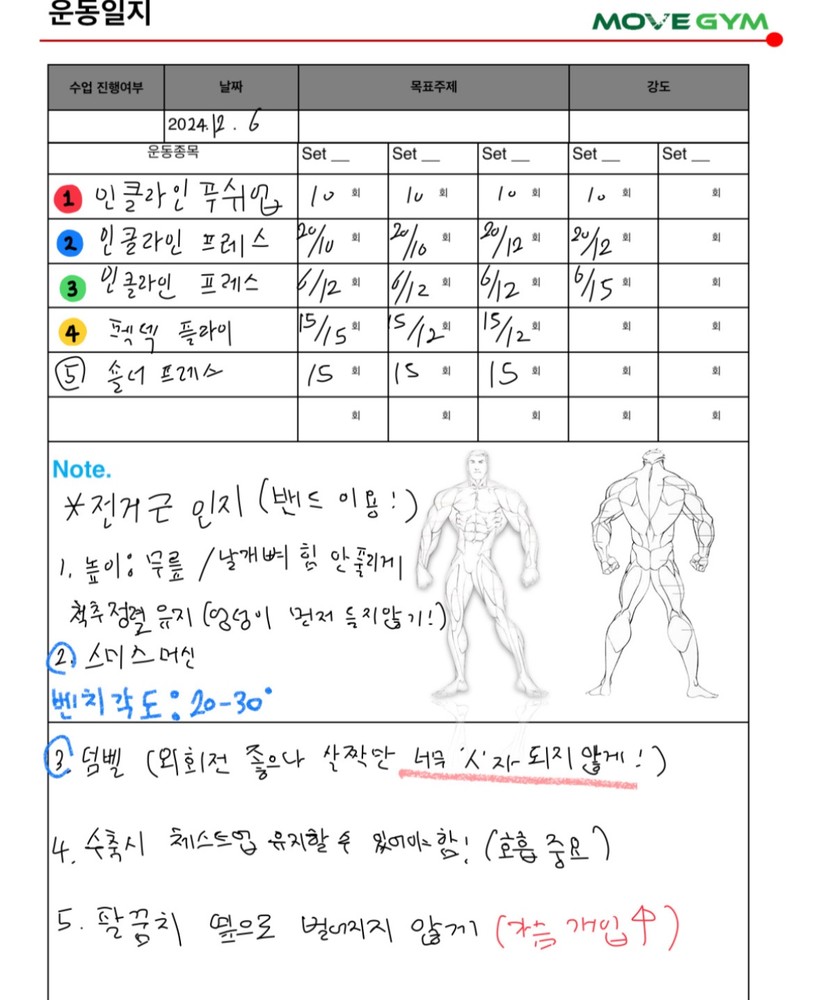 운동일지
MOVE GYM
수업 진행여부 날짜 목표주제 강도
2024.12. 6
운동종목 Set __ Set __ Set __ Set __ Set __
1 인클라인 푸쉬업 10 회 10 회 10 회 10 회 회
2 인클라인 프레스 20/10 회 20/10 회 20/12 회 20/12 회 회
3 인클라인 프레스 6/12 회 6/12 회 6/12 회 6/15 회 회
4 펙덱 플라이 15/15 회 15/12 회 15/12 회 회 회
5 숄더 프레스 15 회 15 회 15 회 회 회
회 회 회 회 회
Note.
*전거근 인지 (밴드 이용!)
1. 높이: 무릎 / 날개뼈 힘 안풀리게
척추정렬 유지 (엉덩이 먼저 들지않기!)
2. 스미스머신
벤치각도: 20-30°
3. 덤벨 (외회전 좋으나 살짝만 너무 '시'자 되지 않게!)
4. 수축시 체스트업 유지할 수 있어야함! (호흡 중요)
5. 팔꿈치 옆으로 벌어지지 않게 (개입↑)